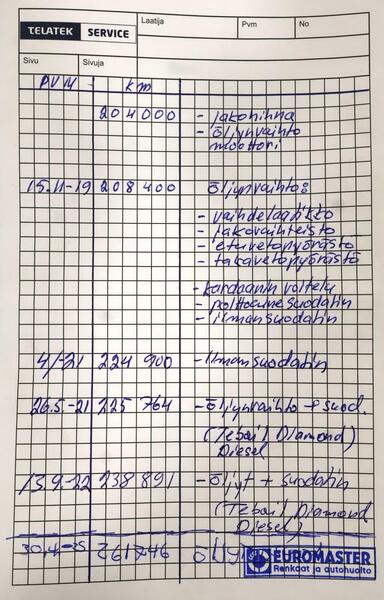 TELATEK SERVICE
Laatija
Pvm
No
Sivu
Sivuja
PVM - km
204000 - jakohihna
- öljynvaihto
moottori
15.11-19 208400 öljynvaihto:
- vaihdelaatikko
- jakovaihteisto
- etuvetopyörästö
- takavetopyörästö
- kardaanin voitelu
- polttoainesuodatin
- ilmansuodatin
4/-21 224 900 - ilmansuodatin
26.5.-21 225 764 - öljynvaihto + suod.
(Teboil Diamond)
Diesel
13.9.-22 238 891 - öljyt + suodatin
(Teboil Diamond
Diesel)
261746
EUROMASTER
Renkaat ja autohuolto